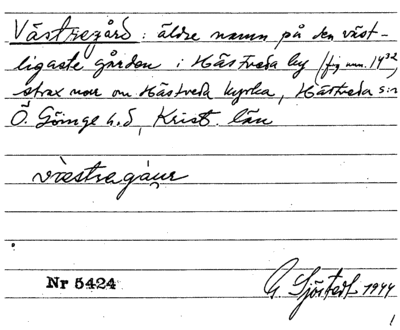 Västregård: äldre namn på den väst-
ligaste gården i Hästveda by (fig. num. 14³²,
strax norr om Hästveda kyrka, Hästveda s:n
Ö. Göinge h.d, Krist. län
væstragáur
Nr 5424 G. Sjöstedt 1944